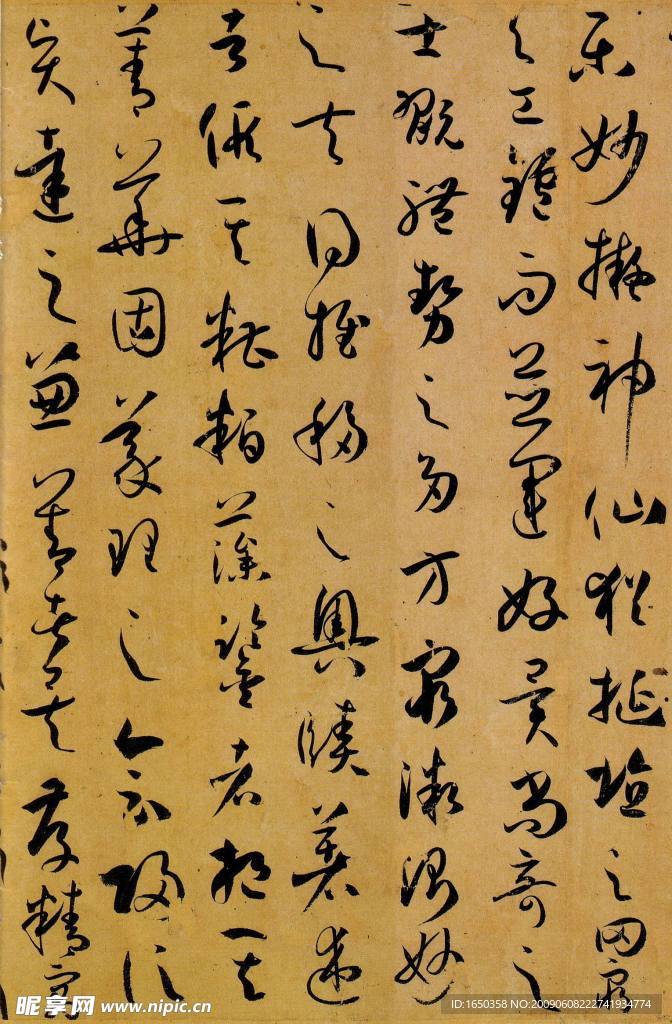 樂妙擬神仙猶挺埴之罔窮
與工鑪而並運好異尚奇之
士翫體勢之多方窮微測妙
之夫得推移之奧賾著述
者假其糟粕藻鑒者挹其
菁華固義理之會歸信
賢達之兼善者矣存精寓
昵享网 www.nipic.cn
ID:1650358 NO:20090608222741934774